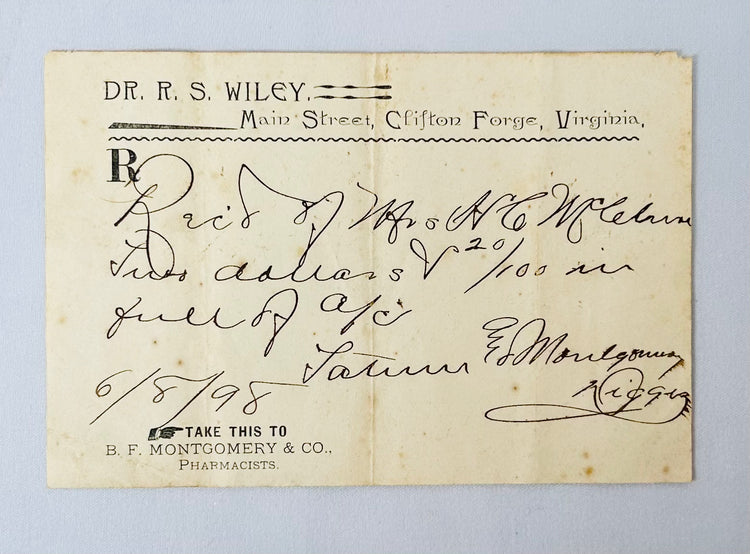 DR. R. S. WILEY.
Main Street, Clifton Forge, Virginia.
R
Rec'd of Mrs H C
Two dollars & 20/100 in
full of a/c
E Montgomery
6/8/98
TAKE THIS TO
B. F. MONTGOMERY & CO.,
PHARMACISTS.